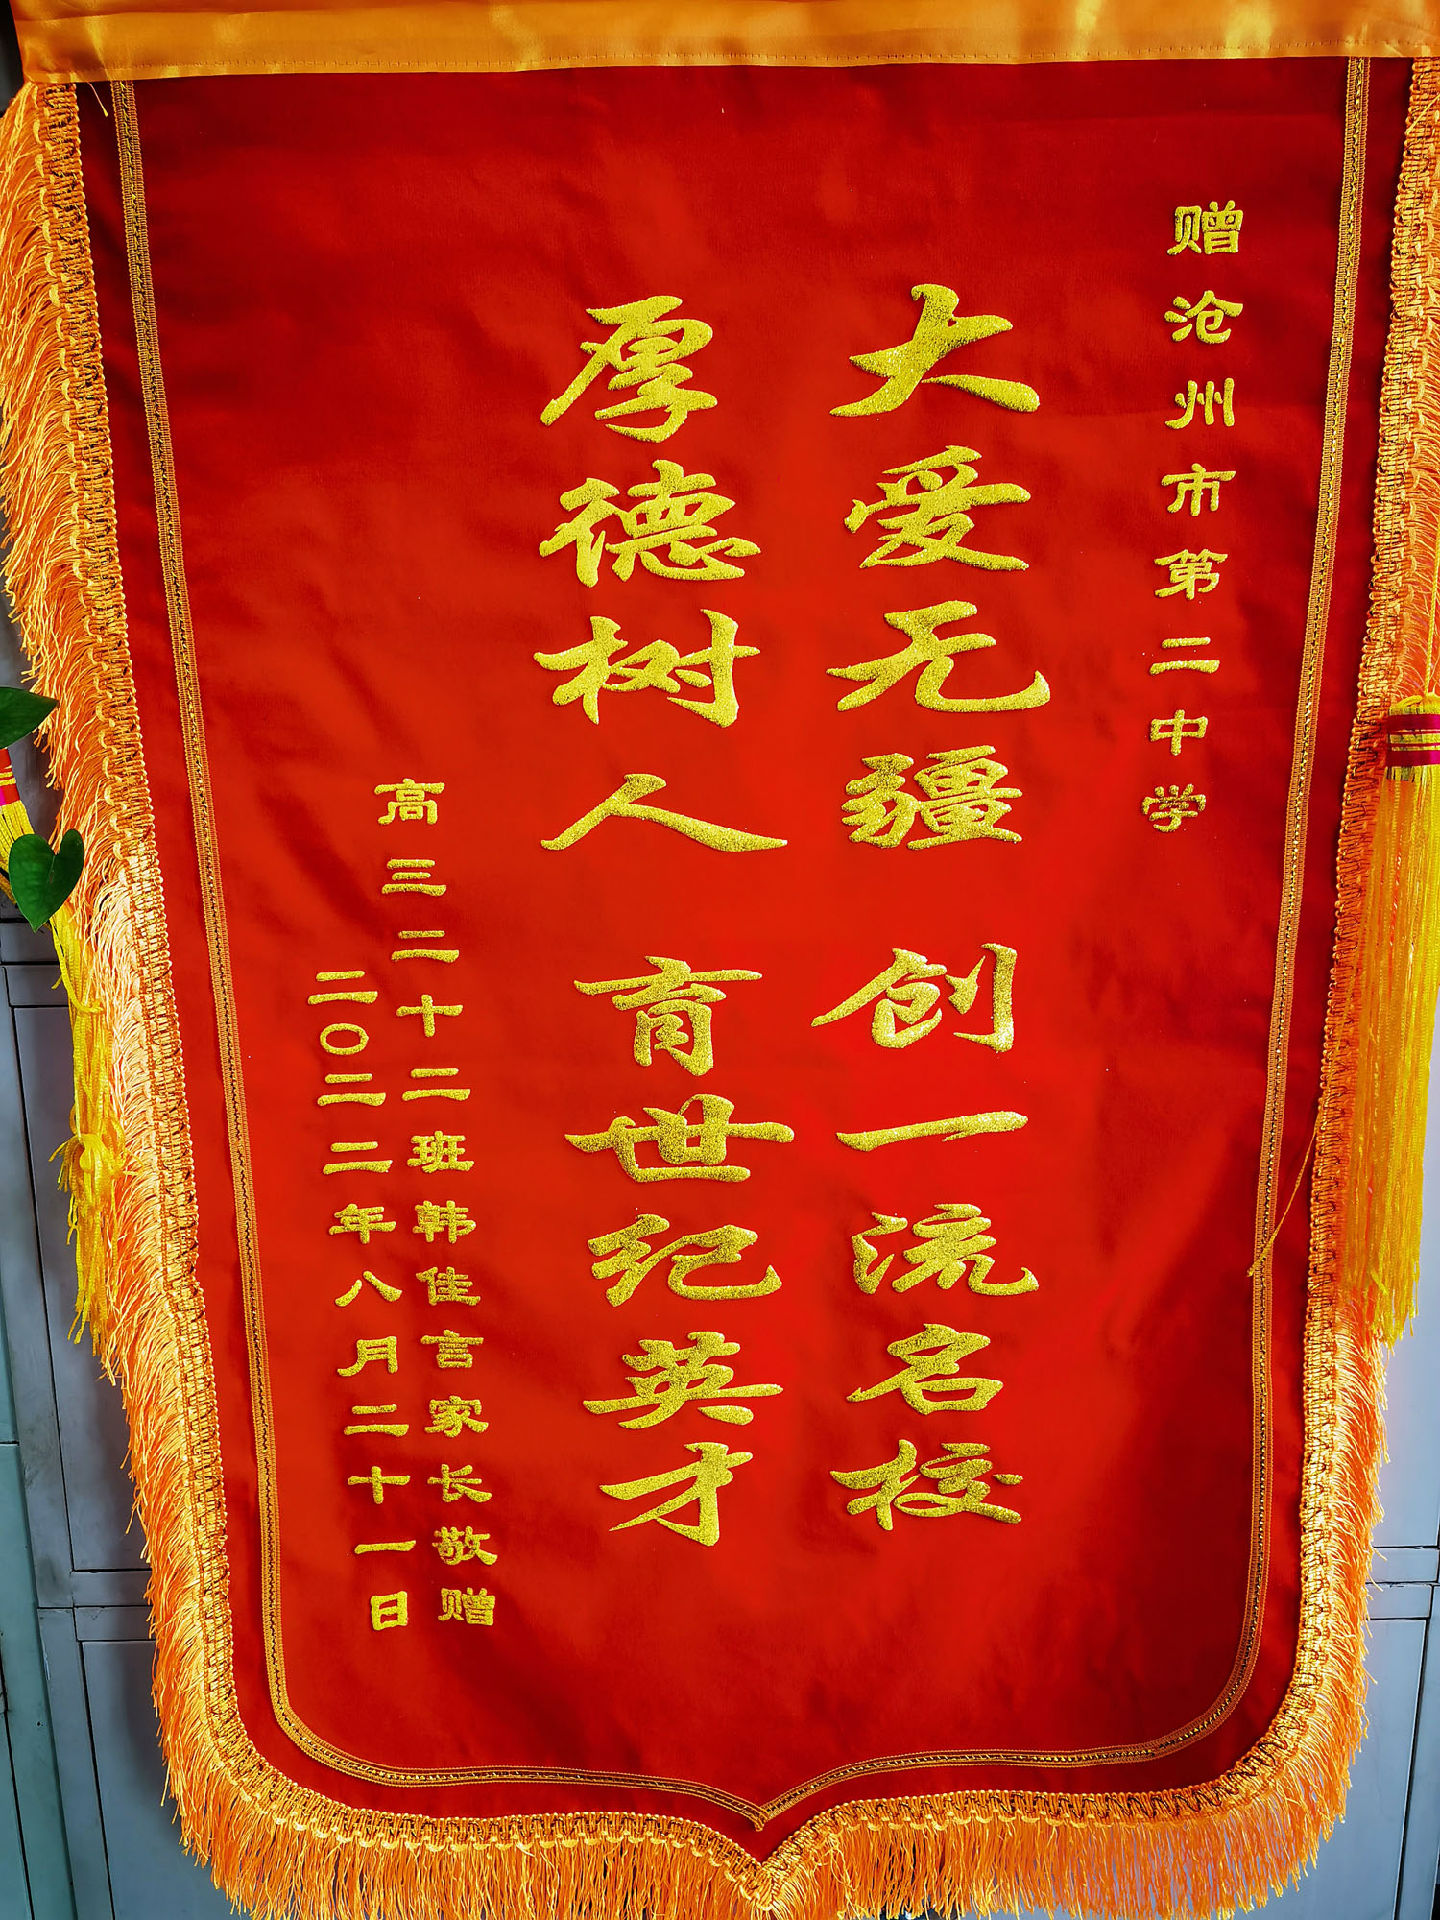 赠沧州市第二中学
大爱无疆 创一流名校
厚德树人 育世纪英才
高三二十二班韩佳言家长敬赠
二〇二二年八月二十一日